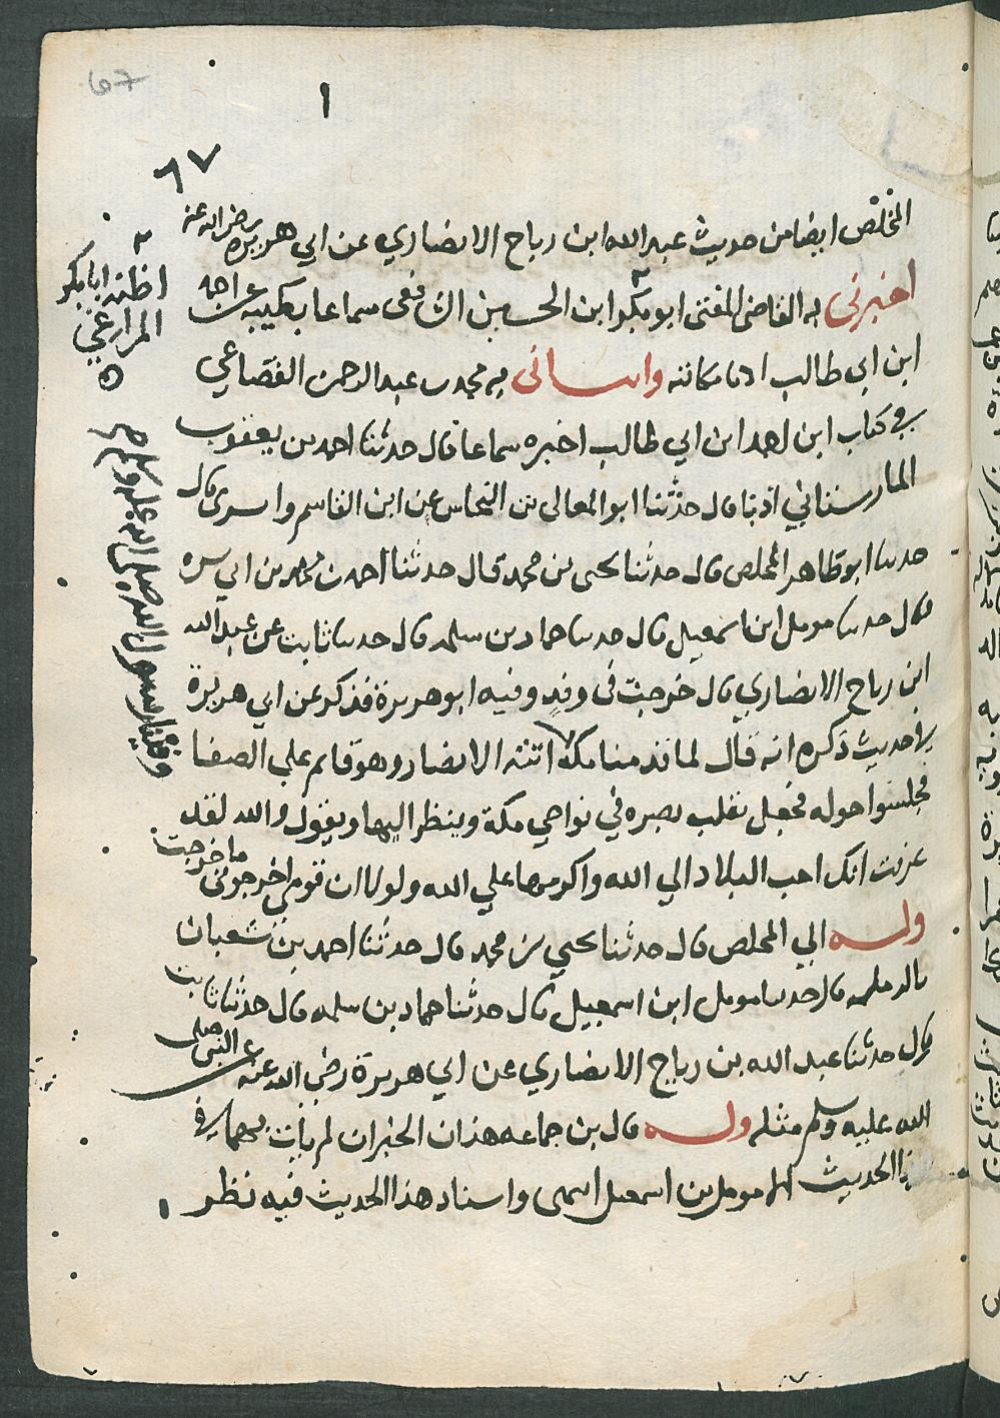 67
١
٦٧
المخلص ايضا من حديث عبد الله ابن رباح الانصاري عن ابي هريرة رضي الله عنه
اخبرني به القاضي المفتي ابو بكر ابن الحسين الشافعي سماعا بطيبة عن احمد
ابن ابي طالب اذنا مكاتبة وانباني به محمد بن عبد الرحمن القضاعي
في كتاب ابن احمد ابن ابي طالب اخبره سماعا قال حدثنا احمد بن يعقوب
المارستاني اذنا قال حدثنا ابو المعالي بن النحاس عن ابن القاسم وا سرى قال
حدثنا ابو طاهر المخلص قال حدثنا يحيى بن محمد قال حدثنا احمد بن محمد بن ابي بره
قال حدثنا مومل ابن اسمعيل قال حدثنا حماد بن سلمه قال حدثنا ثابت عن عبد الله
ابن رباح الانصاري قال خرجت في وفد وفيه ابو هريرة فذكر عن ابي هريرة
في حديث ذكره انه قال لما قدمنا مكة اتته الانصار وهو قايم علي الصفا
فجلسوا حوله فجعل يقلب بصره في نواحي مكة وينظر اليها ويقول والله لقد
عرفت انك احب البلاد الي الله واكرمها علي الله ولولا ان قومي اخرجوني ما خرجت
وله الي المخلص قال حدثنا يحيي بن محمد قال حدثنا احمد بن شعبان
بالرملة قال حدثنا مومل ابن اسمعيل قال حدثنا حماد بن سلمه قال حدثنا ثابت
قال حدثنا عبد الله بن رباح الانصاري عن ابي هريرة رضي الله عنه عن النبي صلى
الله عليه وسلم مثله وله قال بن جماعه هذان الخبران لم يات بهما في
هذا الحديث الا مومل بن اسمعيل انتهى واسناد هذا الحديث فيه نظر
اظنه ابا بكر
المراغي
رسول الله صلى الله عليه وسلم